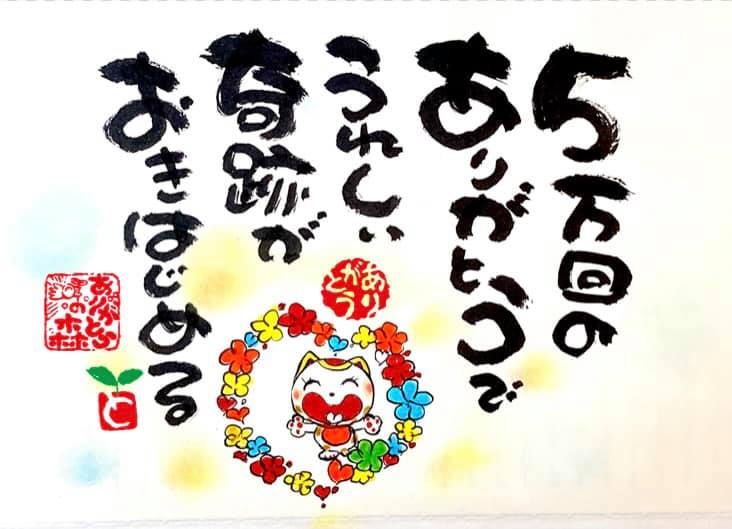 5万回の
ありがとうで
うれしい
奇跡が
おきはじめる
ありがとう
ありがとう
の森